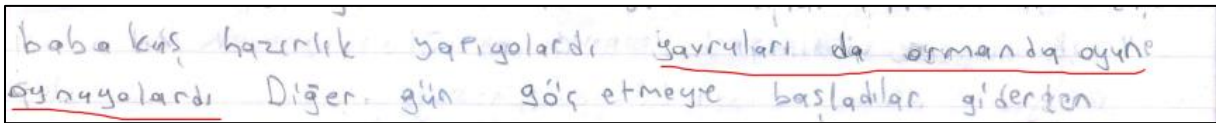 baba kuş hazırlık yapıyolardı yavruları da ormanda oyune
oynuyolardı Diğer. gün göç etmeye başladılar giderken